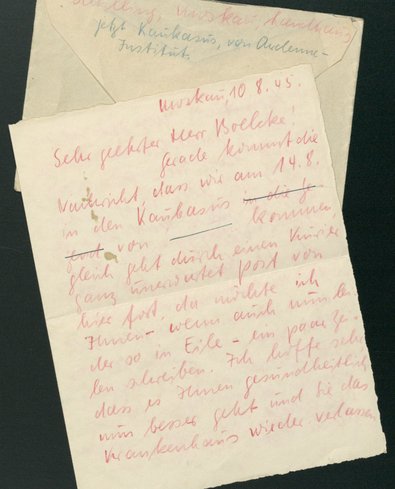 Moskau, Landhaus
jetzt Kaukasus, von Ardenne-
Institut
Moskau, 10.8.45.
Sehr geehrter Herr Boelcke!
Gerade kommt die
Nachricht, dass wir am 14.8.
in den Kaukasus in die
von kommen,
gleich geht durch einen Kurier
ganz unerwartet Post von
hier fort, da möchte ich
Ihnen - wenn auch nun
der so in Eile - ein paar Zei-
len schreiben. Ich hoffe sehr
dass es Ihnen gesundheitlich
nun besser geht und Sie das
Krankenhaus wieder verlassen